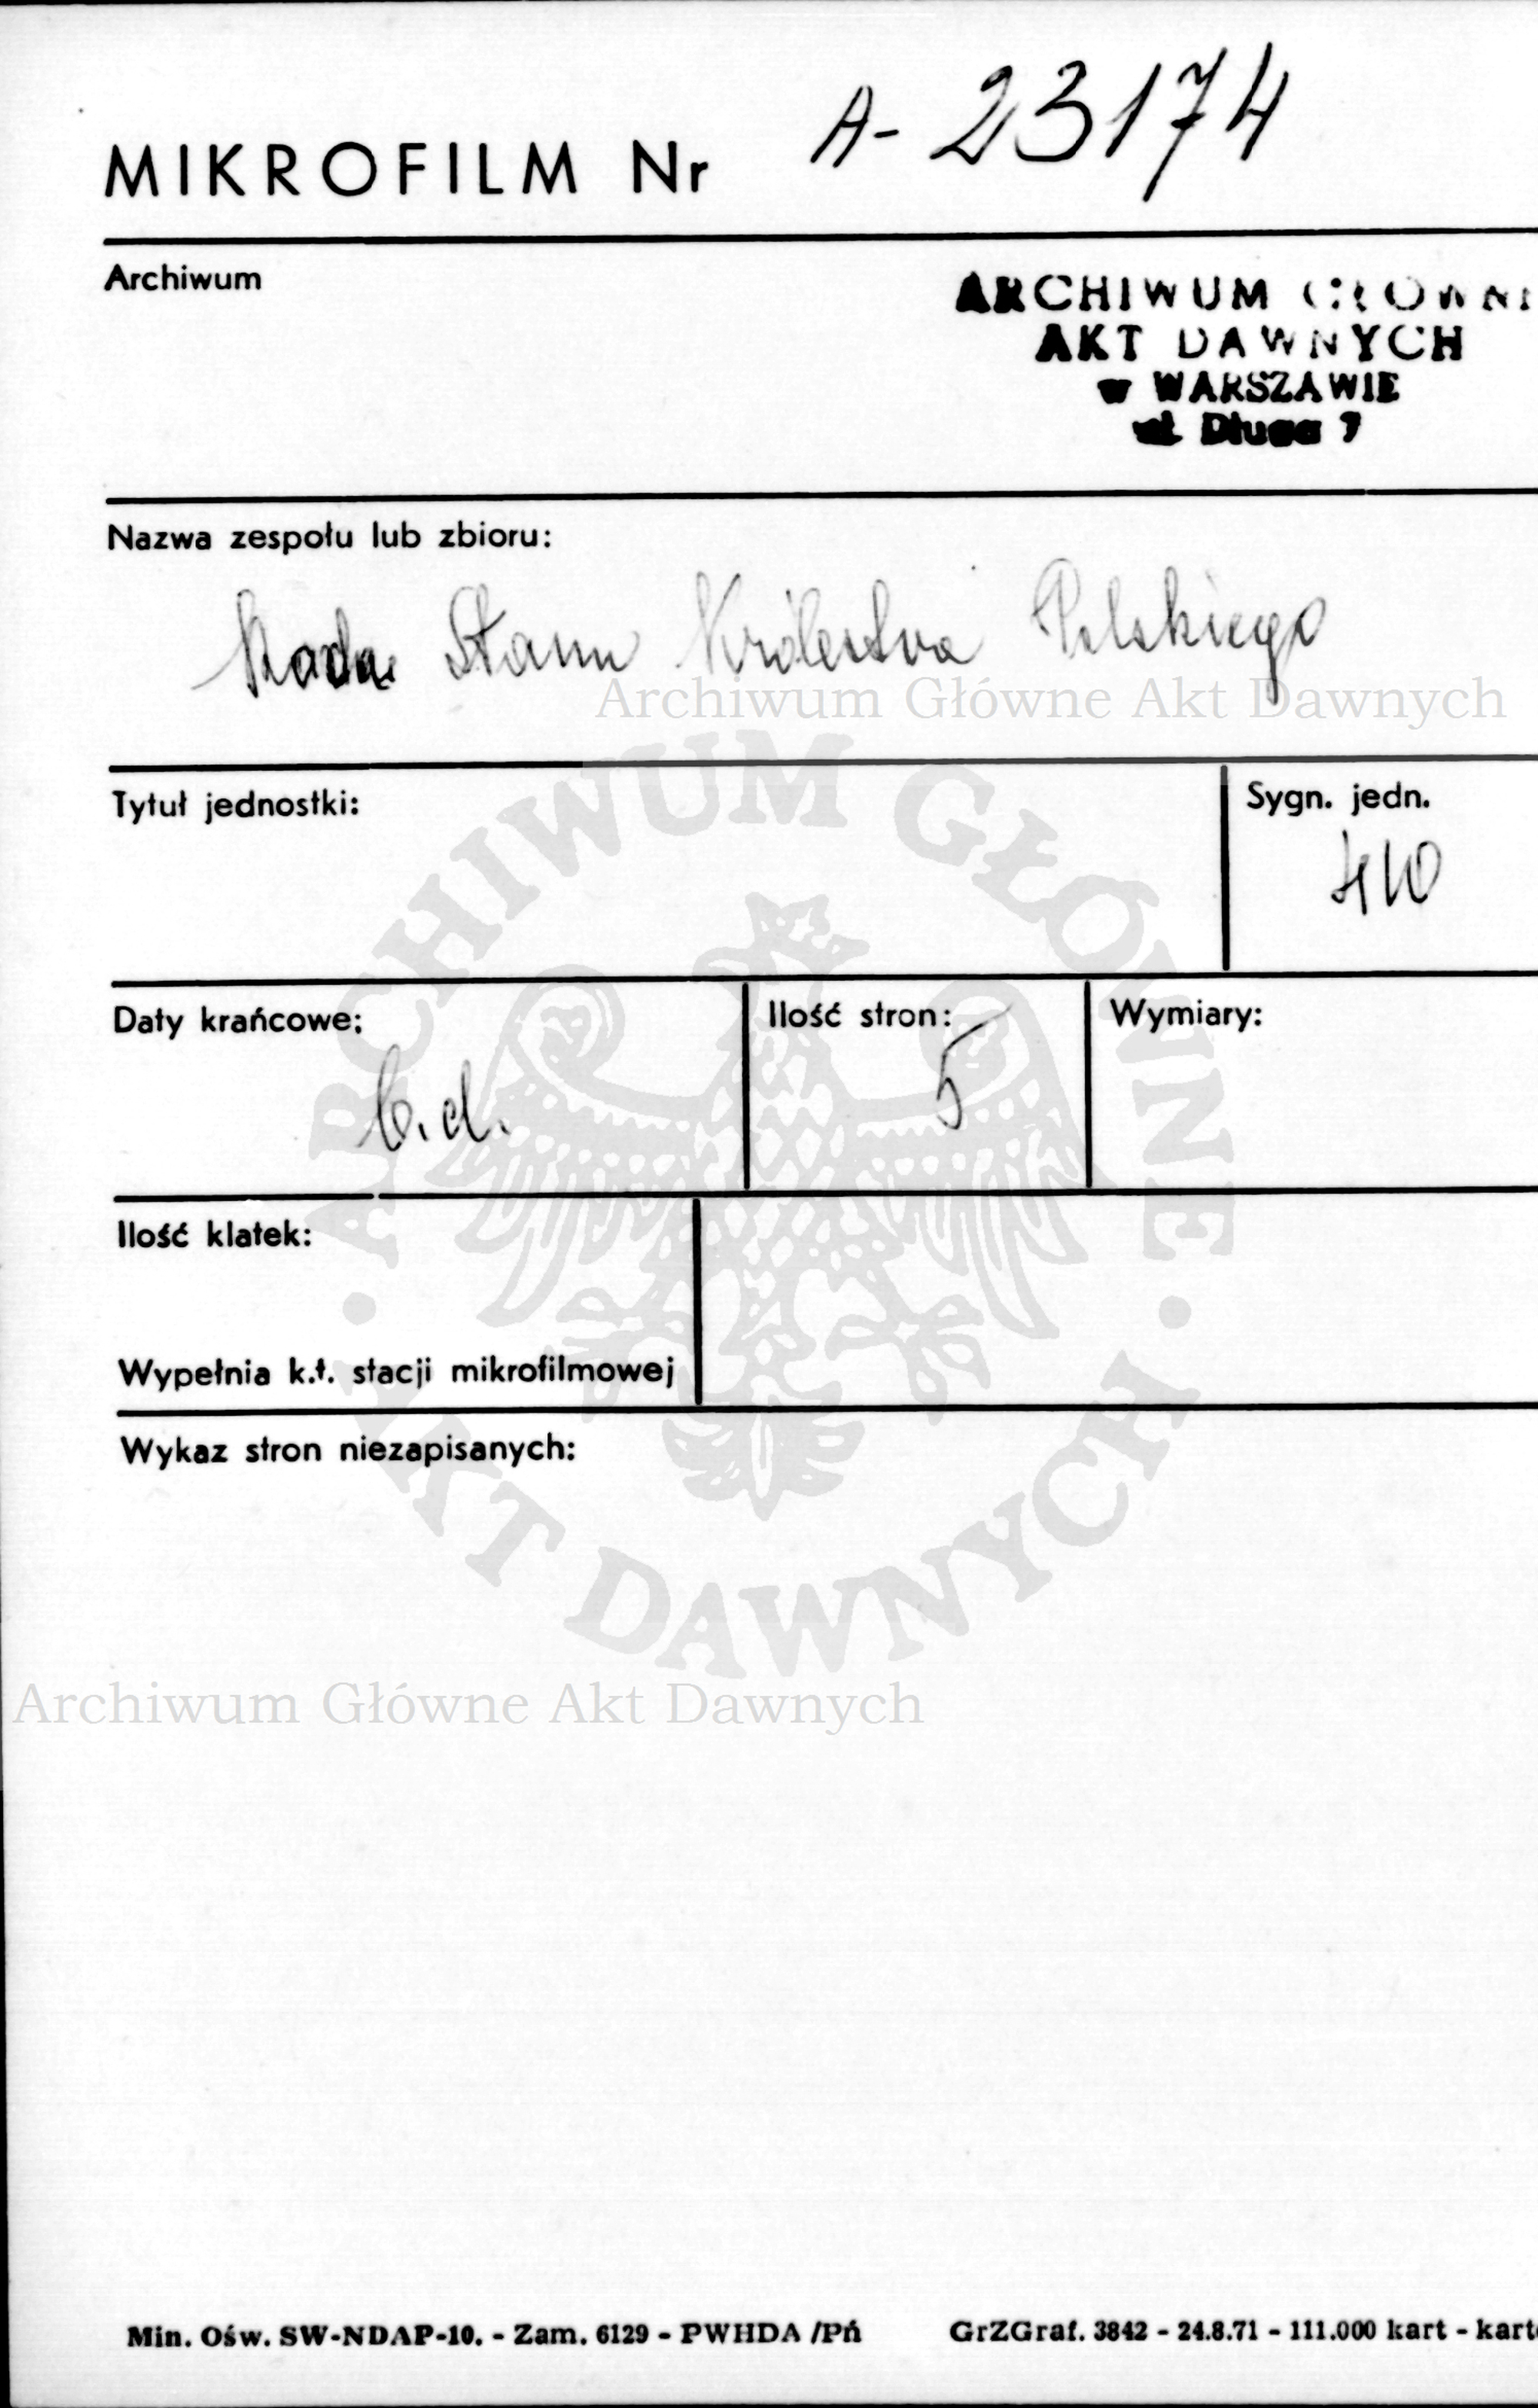 MIKROFILM Nr A-23174
Archiwum
ARCHIWUM GŁÓWNE
AKT DAWNYCH
w WARSZAWIE
ul. Długa 7
Nazwa zespołu lub zbioru:
Rada Stanu Królestwa Polskiego
Archiwum Główne Akt Dawnych
Tytuł jednostki:
Sygn. jedn.
410
Daty krańcowe:
b.d.
Ilość stron:
5
Wymiary:
Ilość klatek:
Wypełnia k.t. stacji mikrofilmowej
Wykaz stron niezapisanych:
ARCHIWUM GŁÓWNE
AKT DAWNYCH
Archiwum Główne Akt Dawnych
Min. Ośw. SW-NDAP-10. - Zam. 6129 - PWHDA /Pń GrZGraf. 3842 - 24.8.71 - 111.000 kart -